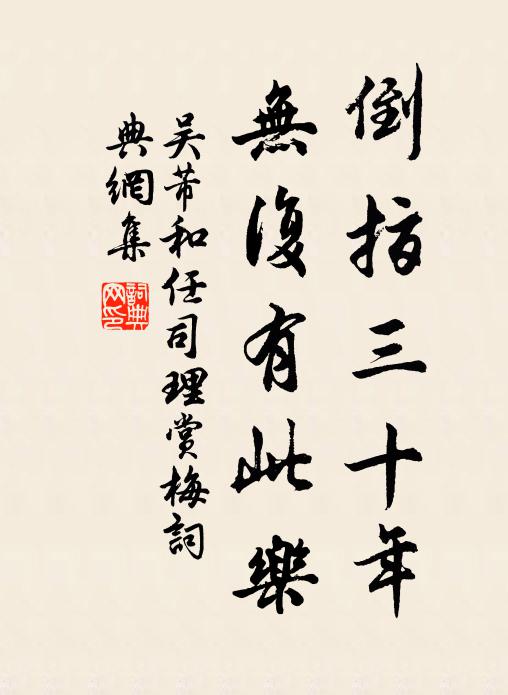 倒指三十年
無復有此樂
吴芾和任司理賞梅詞
典網集
詞典網印